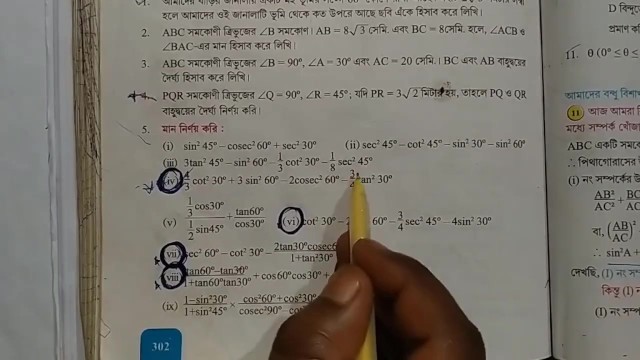 হলে আমাদের ওই জানালাটি ভূমি থেকে কত উপরে আছে ছবি এঁকে হিসাব করে লিখি।
2. ABC সমকোণী ত্রিভুজের ∠B সমকোণ। AB = 8√3 সেমি. এবং BC = 8সেমি. হলে, ∠ACB ও
∠BAC-এর মান হিসাব করে লিখি।
3. ABC সমকোণী ত্রিভুজের ∠B = 90°, ∠A = 30° এবং AC = 20 সেমি.। BC এবং AB বাহুদ্বয়ের
দৈর্ঘ্য হিসাব করে লিখি।
4. PQR সমকোণী ত্রিভুজের ∠Q = 90°, ∠R = 45°; যদি PR = 3√2 মিটার হয়, তাহলে PQ ও QR
বাহুদ্বয়ের দৈর্ঘ্য নির্ণয় করি।
5. মান নির্ণয় করি :
(i) sin² 45° – cosec² 60° + sec² 30° (ii) sec² 45° – cot² 45° – sin² 30° – sin² 60°
(iii) 3tan² 45° – sin² 60° – 1/3 cot² 30° – 1/8 sec² 45°
(iv) 4/3 cot² 30° + 3 sin² 60° – 2cosec² 60° – 3/4 tan² 30°
(v) (1/3 cos30°)/(1/2 sin45°) + tan60°/cos30° (vi) cot² 30° – 60° – 3/4 sec² 45° – 4sin² 30°
(vii) sec² 60° – cot² 30° – 2tan30°cosec6 /1+tan²30°
(viii) tan60°–tan30°/1+tan60°tan30° + cos60°cos30° +
(ix) 1–sin²30°/1+sin²45° × cos²60°+cos²30°/cosec²90°–
302
D বিন্দু
প্রমাণ
11. θ (0° ≤ θ
আমাদের বন্ধু
11 আজ আমরা
মধ্যে সম্পর্ক
ABC একটি
∴ পিথাগোরাসের
(i) নং সম্পর্কের
AB²/AC² +
বা, (AB/AC)²
∴ sin²
দেখছি, (I) নং
কিন্তু (I)